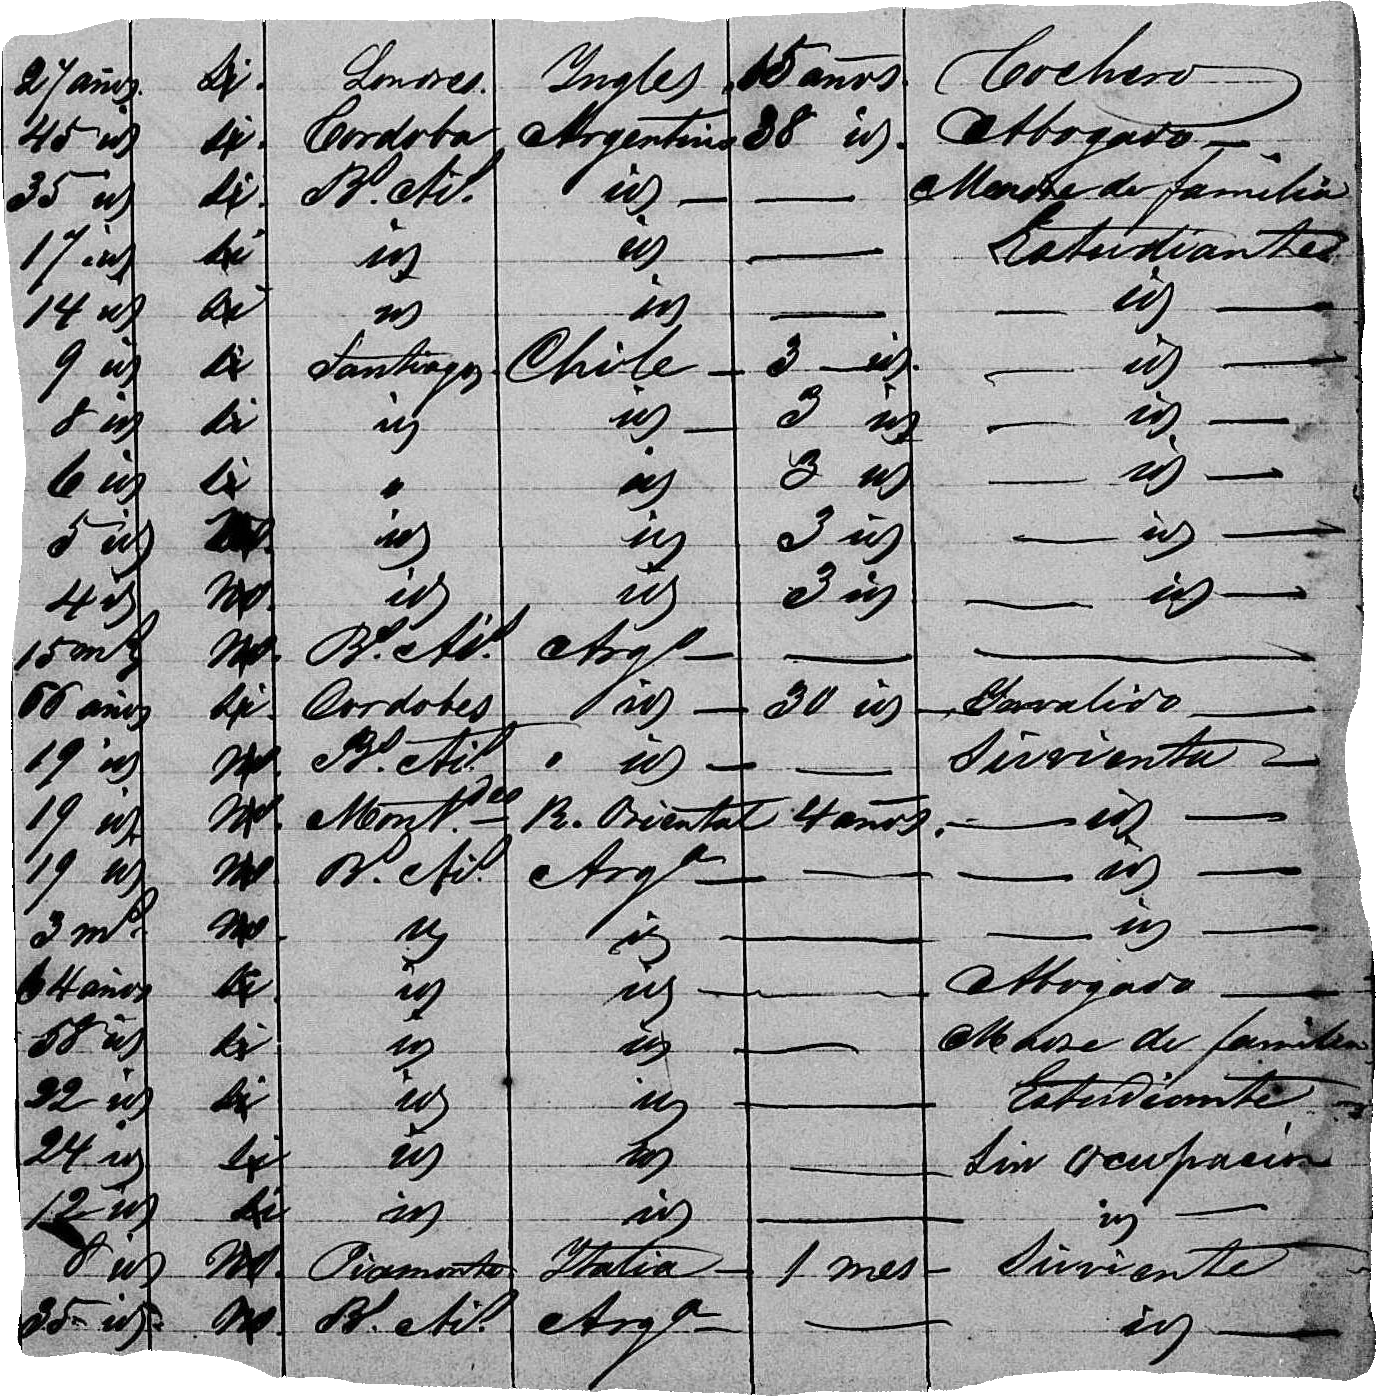 27 años. Si. Londres. Ingles. 15 años. Cochero
45 id Si. Cordoba Argentino 38 id. Abogado —
35 id Si. Bs. Ais. id — — Madre de familia
17 id Si id id — Estudiantes
14 id Si id id — — id —
9 id Si Santiago. Chile — 3 id. — id —
8 id Si id id — 3 id — id —
6 id Si " id 3 id — id —
5 id id id 3 id — id —
4 id No. id id 3 id — id —
15 ms No. Bs. Ais. Arga — — —
66 años Si. Cordobes id — 30 id — Invalido —
19 id No. Bs. Ais. " id — — Sirvienta —
19 id No. Montdeo — R. Oriental 4 años. — id —
19 id No Bs. Ais. Arga — — — id —
3 ms. No. id id — — id —
64 años Si. id id — Abogado —
58 id Si. id id — Madre de familia
22 id Si id id — Estudiante —
24 id Si id id — Sin ocupacion
12 id Si id id — id —
8 id No. Piamonte Italia — 1 mes — Sirviente
35 id. No. Bs. Ais. Arga — — id —